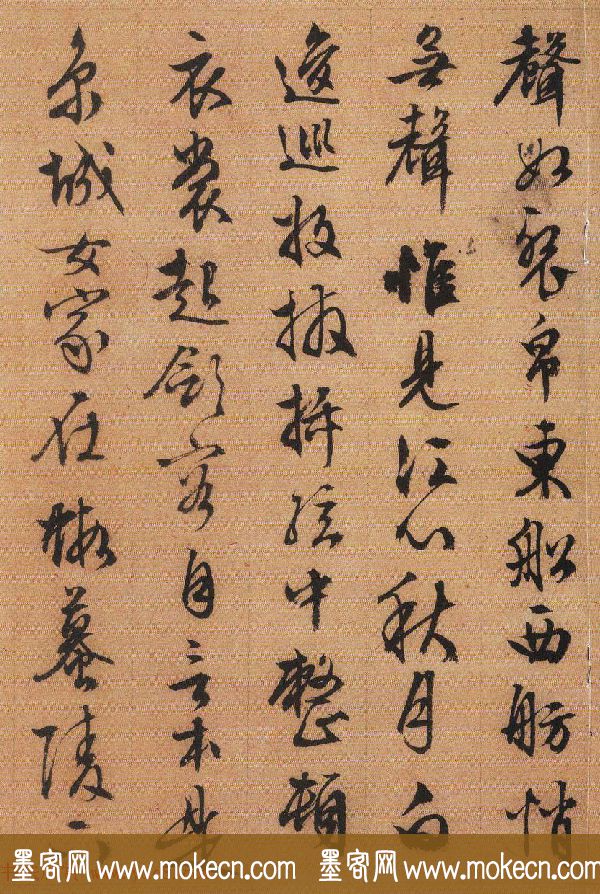 聲如裂帛東船西舫悄
無聲惟見江心秋月白
逡巡收撥插絃中整頓
衣裳起斂容自言本是
京城女家在蝦蟇陵下
墨客网 www.mokecn.com 墨客网 www.mokecn.com